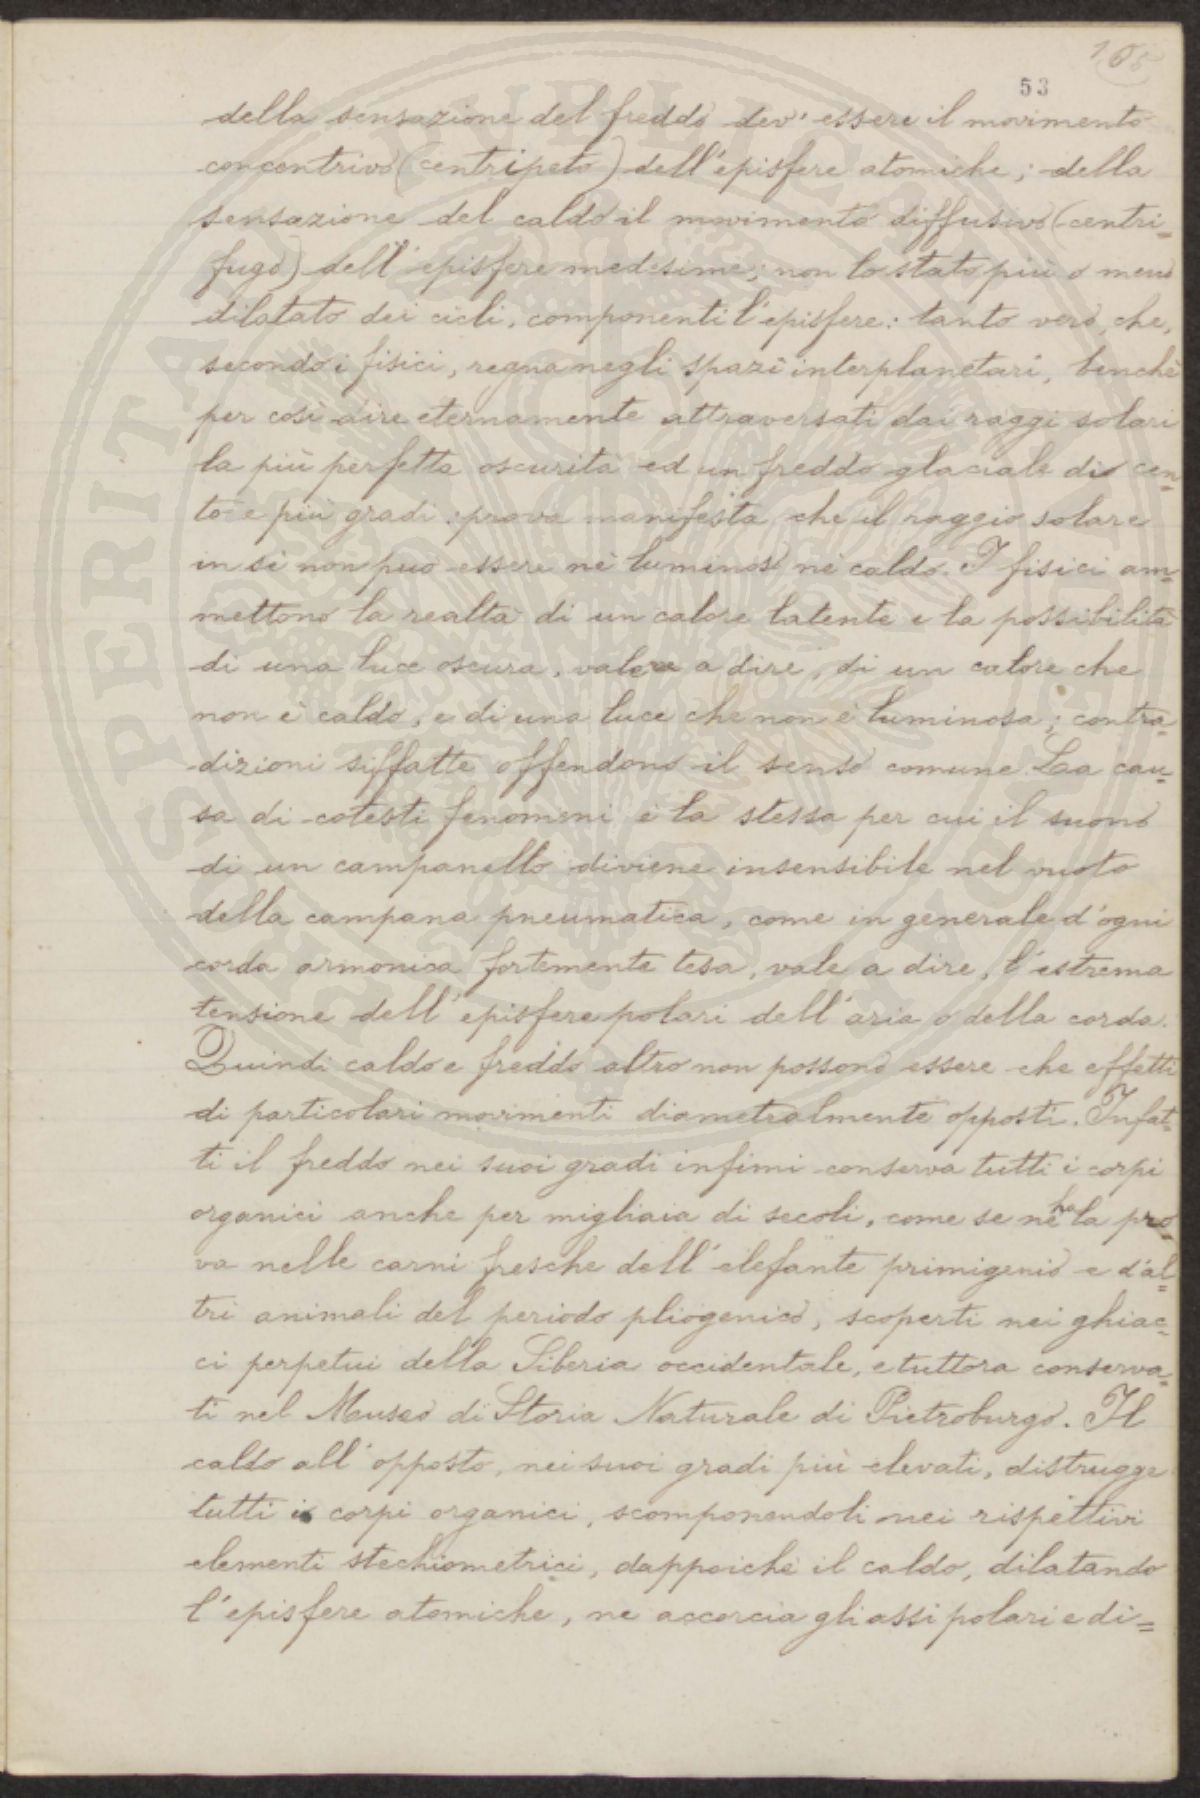 105
53
della sensazione del freddo dev'essere il movimento
concentrivo (centripeto) dell'episfere atomiche; della
sensazione del caldo il movimento diffusivo (centri=
fugo) dell'episfere medesime; non lo stato più o meno
dilatato dei cicli, componenti l'episfere: tanto vero, che,
secondo i fisici, regna negli spazî interplanetari, benchè
per così dire eternamente attraversati dai raggi solari
la più perfetta oscurità ed un freddo glaciale di cen=
to e più gradi: prova manifesta che il raggio solare
in sè non può essere nè luminoso nè caldo. I fisici am=
mettono la realtà di un calore latente e la possibilità
di una luce oscura, vale a dire, di un calore che
non è caldo, e di una luce che non è luminosa; contra=
dizioni siffatte offendono il senso comune. La cau=
sa di cotesti fenomeni è la stessa per cui il suono
di un campanello diviene insensibile nel vuoto
della campana pneumatica, come in generale d'ogni
corda armonica fortemente tesa, vale a dire, l'estrema
tensione dell'episfere polari dell'aria o della corda.
Quindi caldo e freddo altro non possono essere che effetti
di particolari movimenti diametralmente opposti. Infat=
ti il freddo nei suoi gradi infimi conserva tutti i corpi
organici anche per migliaia di secoli, come se ne ha la pro=
va nelle carni fresche dell'elefante primigenio e d'al=
tri animali del periodo pliogenico, scoperti nei ghiac=
ci perpetui della Siberia occidentale, e tuttora conserva=
ti nel Museo di Storia Naturale di Pietroburgo. Il
caldo all'opposto, nei suoi gradi più elevati, distrugge
tutti i corpi organici, scomponendoli nei rispettivi
elementi stechiometrici, dappoichè il caldo, dilatando
l'episfere atomiche, ne accorcia gli assi polari e di=